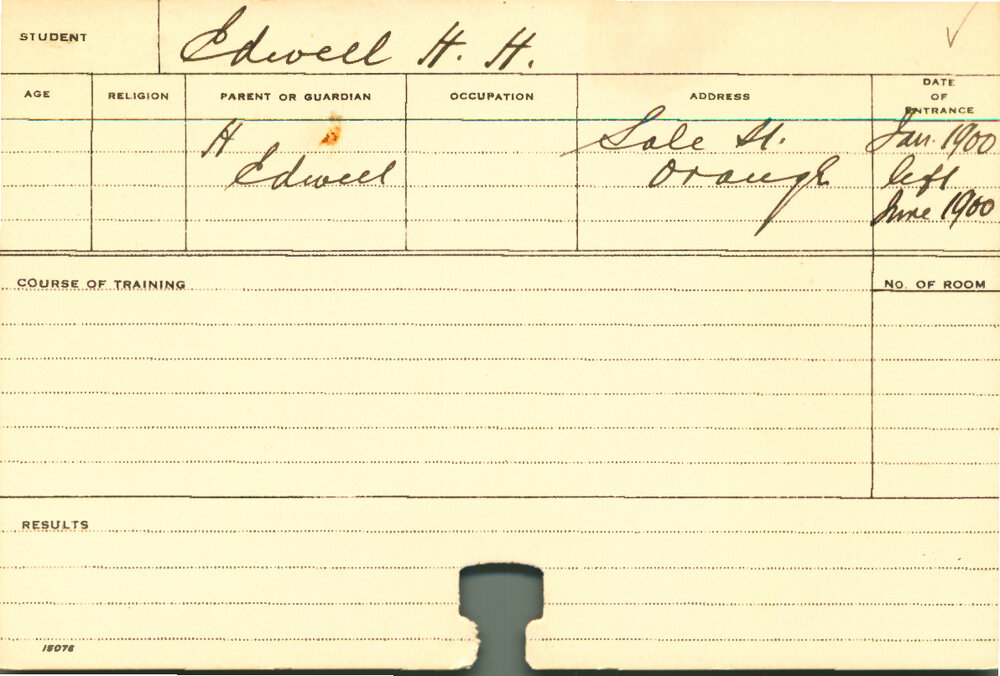 STUDENT Edwell H. H.
AGE RELIGION PARENT OR GUARDIAN OCCUPATION ADDRESS DATE OF ENTRANCE
H Sale St. Jan. 1900
Edwell Orange left
June 1900
COURSE OF TRAINING NO. OF ROOM
RESULTS
15076